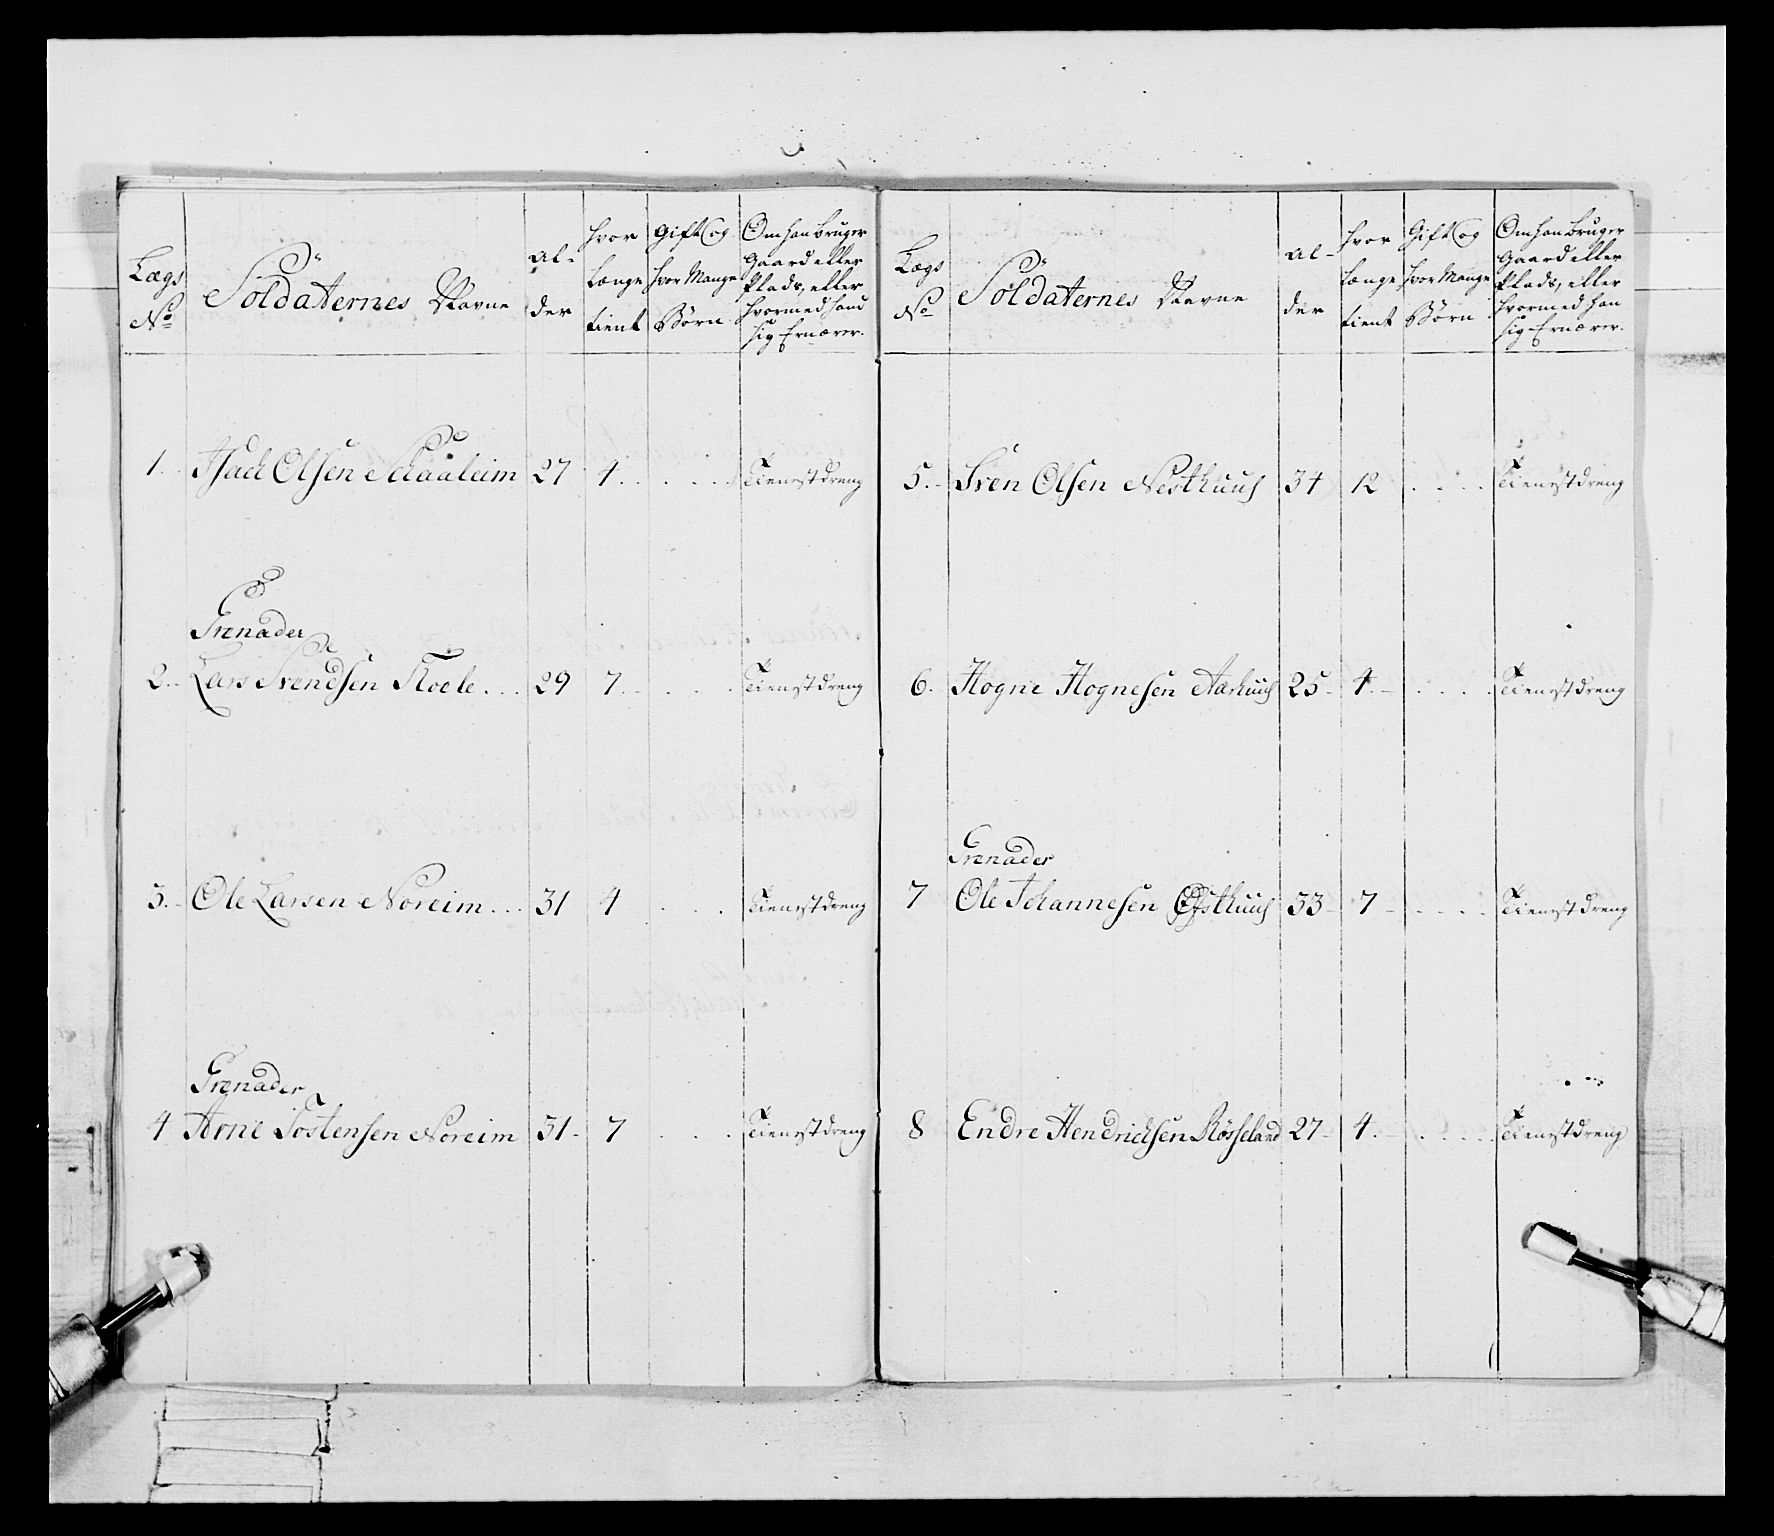 Lægs No Soldaternes Navne Al-der hvor længe tient Gift og hvor Mange Børn Om han bruger Gaard eller Plads, eller hvormed hand sig Ernærer.
1. Isach Olsen 27 4 Tienestdreng
Grenader
2. Lars Svendsen 29 7 Tienestdreng
3. Ole Larsen Noreim 31 4 Tienestdreng
Grenader
4 Arne Tostensen Noreim 31 7 Tienestdreng
Lægs No Soldaternes Navne Al-der hvor længe tient Gift og hvor Mange Børn Om han bruger Gaard eller Plads, eller hvormed han sig Ernærer.
5. Sven Olsen Nesthuus 34 12 Tienestdreng
6. Hogne Hognesen Aarhuus 25 4 Tienestdreng
Grenader
7 Ole Johannesen 33 7 Tienestdreng
8 Endre Hendrichsen Røsseland 27 4. Tienestdreng